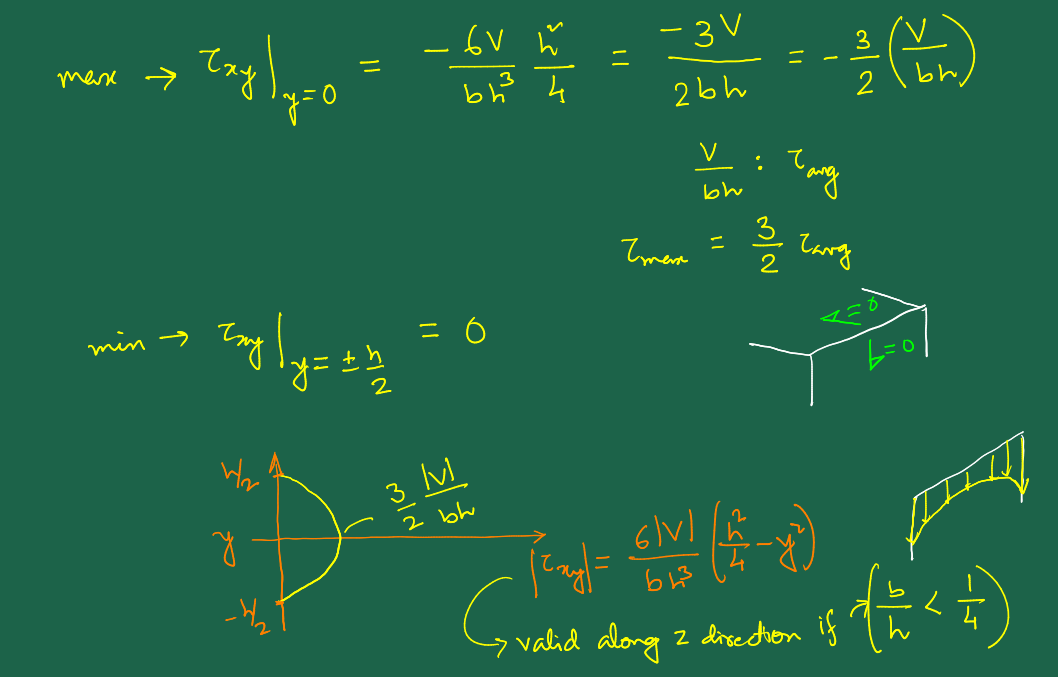 max → τ_xy |_y=0 = -6V/bh³ h²/4 = -3V/2bh = -3/2 (V/bh)
V/bh : τ_avg
τ_max = 3/2 τ_avg
min → τ_xy |_y=±h/2 = 0
=0
=0
h/2
3/2 |V|/bh
y
|τ_xy| = 6|V|/bh³ (h²/4 - y²)
-h/2
valid along z direction if (b/h < 1/4)